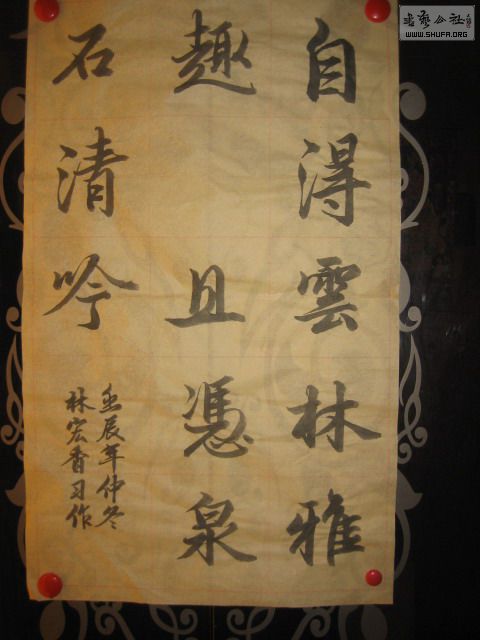 自得雲林雅
趣 且憑泉
石清吟
壬辰年仲冬
林宏香习作
書藝公社
WWW.SHUFR.ORG